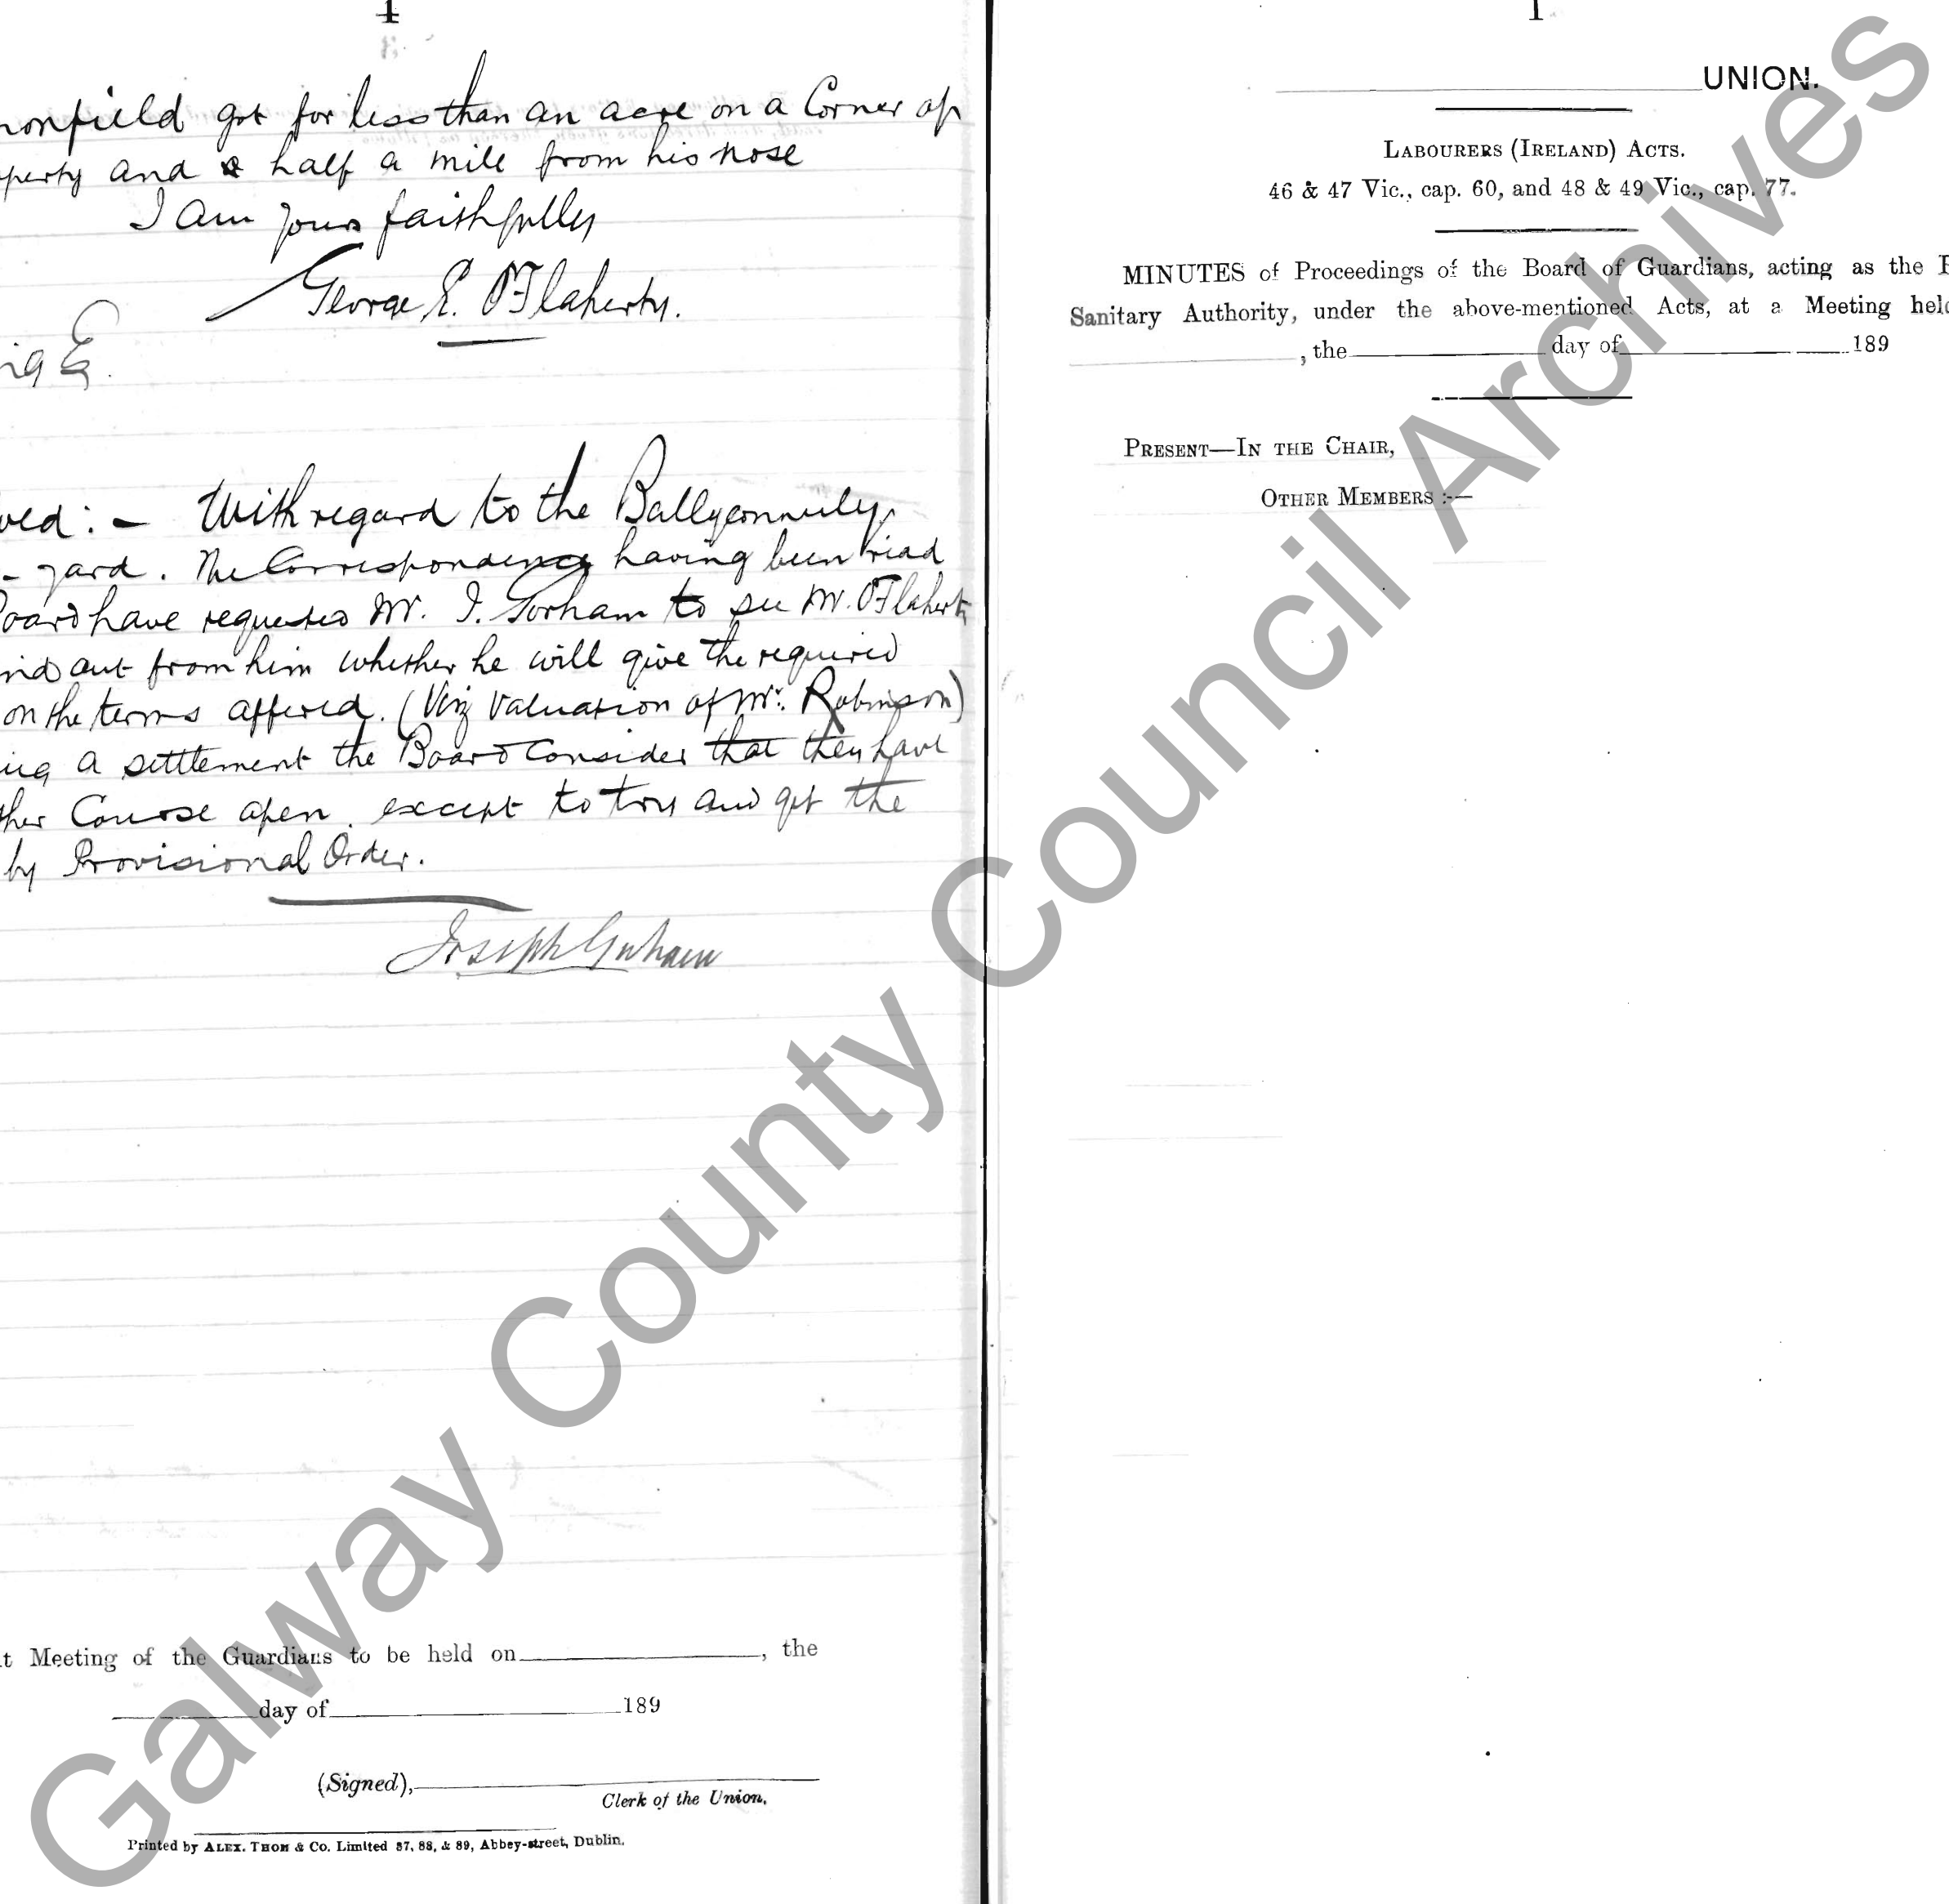 4
onfield got for less than an acre on a Corner of
perty and a half a mile from his nose
I am yours faithfully
George E. O'Flaherty.
ved: - With regard to the Ballyconneely
- yard. The Correspondence having been read
oard have requested Mr. J. Gorham to see Mr. O'Flaherty
ind out from him whether he will give the required
on the terms offered. (Viz Valuation of Mr. Robinson)
ing a settlement the Board Consider that they have
ther Course open except to try and get the
by Provisional Order.
Joseph Gorham
t Meeting of the Guardians to be held on , the
day of 189
(Signed),
Clerk of the Union.
Printed by ALEX. THOM & Co. Limited 87, 88, & 89, Abbey-street, Dublin.
1
UNION.
LABOURERS (IRELAND) ACTS.
46 & 47 Vic., cap. 60, and 48 & 49 Vic., cap. 77.
MINUTES of Proceedings of the Board of Guardians, acting as the
Sanitary Authority, under the above-mentioned Acts, at a Meeting held
, the day of 189
PRESENT—IN THE CHAIR,
OTHER MEMBERS :—
Galway County Council Archives